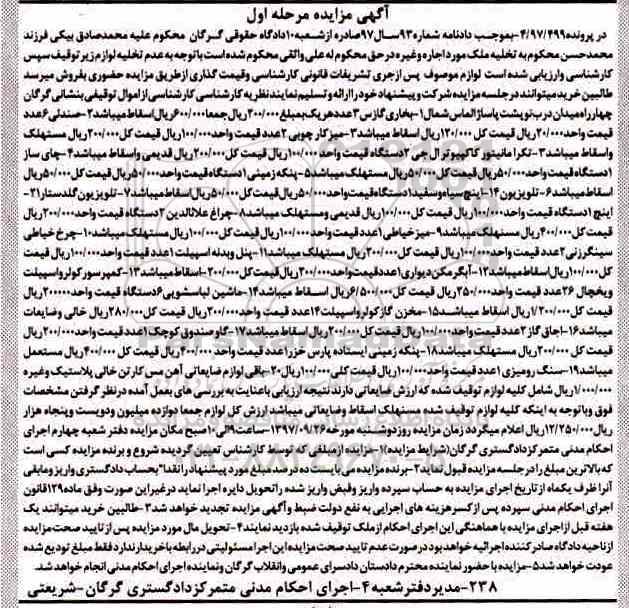 آگهی مزایده مرحله اول
در پرونده ۴/۹۷/۴۹۹-بموجب دادنامه شماره ۹۳سال ۹۷صادره از شعبه ۱۰دادگاه حقوقی گرگان محکوم علیه محمدصادق بیکی فرزند
محمدحسن محکوم به تخلیه ملک مورد اجاره وغیره درحق محکوم له علی واثقی محکوم شده است باتوجه به عدم تخلیه لوازم زیر توقیف سپس
کارشناسی وارزیابی شده است لوازم موصوف پس ازجری تشریفات قانونی کارشناسی وقیمت گذاری ازطریق مزایده حضوری بفروش میرسد
طالبین خرید میتوانند در جلسه مزایده شرکت و پیشنهاد خود را ارائه و تسلیم نمایند نظریه کارشناسی کارشناسی از اموال توقیفی بنشانی گرگان
چهارراه میدان درب نوپشت پاساژ الماس شمال۱-بخاری گازس ۳عدد هریک بمبلغ ۲۰۰/۰۰۰ریال جمعا ۶۰۰/۰۰۰ریال اسقاط میباشد۲-صندلی ۶عدد
قیمت واحد ۲۰/۰۰۰ریال قیمت کل ۱۲۰/۰۰۰ریال اسقاط میباشد۳-میز کار چوبی ۲عدد قیمت واحد ۱۰۰/۰۰۰ریال قیمت کل ۲۰۰/۰۰۰ریال مستهلک
واسقاط میباشد۳-تکرا مانیتور کامپیوتر ال جی ۲دستگاه قیمت واحد ۱۰۰/۰۰۰ریال قیمت کل ۲۰۰/۰۰۰ریال قدیمی واسقاط میباشد۴-چای ساز
۱دستگاه قیمت واحد ۵۰/۰۰۰ریال قیمت کل ۵۰/۰۰۰ریال مستهلک میباشد۵-پنکه زمینی ۱دستگاه قیمت واحد ۵۰/۰۰۰ریال قیمت کل ۵۰/۰۰۰ریال
اسقاط میباشد۶-تلویزیون ۱۴-اینچ سیاه وسفید ۱دستگاه قیمت واحد ۵۰/۰۰۰ریال قیمت کل ۵۰/۰۰۰ریال اسقاط میباشد۷-تلویزیون گلدستار ۲۱-
اینچ ۱دستگاه قیمت واحد ۱۰۰/۰۰۰ریال قیمت کل ۱۰۰/۰۰۰ریال قدیمی ومستهلک میباشد۸-چراغ علائالدین ۲دستگاه قیمت واحد ۲۰۰/۰۰۰ریال
قیمت کل ۴۰۰/۰۰۰ریال مستهلک میباشد۹-میز خیاطی ۱عدد قیمت واحد ۱۰۰/۰۰۰ریال قیمت کل ۱۰۰/۰۰۰ریال مستهلک میباشد۱۰-چرخ خیاطی
سینگر زنی ۲عدد قیمت واحد ۱۰۰/۰۰۰ریال قیمت کل ۲۰۰/۰۰۰ریال مستهلک میباشد۱۱-پنل وبدنه اسپیلت ۱عدد قیمت واحد ۱۰۰/۰۰۰ریال قیمت
کل ۱۰۰/۰۰۰ریال اسقاط میباشد۱۲-آبگرمکن دیواری ۱عدد قیمت واحد ۲۰۰/۰۰۰ریال قیمت کل ۲۰۰/۰۰۰-اسقاط میباشد۱۳-کمپرسور کولر واسپیلت
ویخچال ۲۶عدد قیمت واحد ۲۵۰/۰۰۰ریال قیمت کل ۶/۵۰۰/۰۰۰ریال اسقاط میباشد۱۴-ماشین لباسشویی ۶دستگاه قیمت واحد ۲۰۰۰۰۰ریال
قیمت کل ۱/۲۰۰/۰۰۰ریال اسقاط میباشد۱۵-مخزن گاز کولر واسپیلت ۱۴عدد قیمت واحد ۲۰/۰۰۰ریال قیمت کل ۲۸۰/۰۰۰ریال خالی وضایعات
میباشد۱۶-اجاق گاز ۲عدد قیمت واحد ۱۰۰/۰۰۰ریال قیمت کل ۲۰۰/۰۰۰ریال اسقاط میباشد۱۷-گاوصندوق کوچک ۱عدد قیمت واحد ۲۰۰/۰۰۰ریال
قیمت کل ۲۰۰/۰۰۰ریال مستهلک میباشد۱۸-پنکه زمینی ایستاده پارس خزر ۱عدد قیمت واحد ۴۰۰/۰۰۰ریال قیمت کل ۴۰۰/۰۰۰ریال مستعمل
میباشد۱۹-سنگ رومیزی ۱عدد قیمت واحد ۱۰۰/۰۰۰ریال قیمت کلی ۱۰۰/۰۰۰ریال۲۰-باقی لوازم ضایعاتی آهن مس کارتن خالی پلاستیک وغیره
۱/۰۰۰/۰۰۰ریال شامل کلیه لوازم توقیف شده که ارزش ضایعاتی دارند نتیجه ارزیابی باعنایت به بررسی های بعمل آمده درنظر گرفتن مشخصات
فوق وباتوجه به اینکه کلیه لوازم توقیف شده مستهلک اسقاط وضایعاتی میباشد ارزش کل لوازم جمعا دوازده میلیون ودویست وپنجاه هزار
ریال ۱۲/۲۵۰/۰۰۰ریال اعلام میگردد زمان مزایده روز دوشنبه مورخه ۱۳۹۷/۰۹/۲۶-ساعت ۹الی ۱۰صبح مکان مزایده دفتر شعبه چهارم اجرای
احکام مدنی متمرکز دادگستری گرگان(شرایط مزایده)۱-مزایده از مبلغی که توسط کارشناس تعیین گردیده شروع و برنده مزایده کسی است
که بالاترین مبلغ را درجلسه مزایده قبول نماید۲-برنده مزایده می بایست ده درصد مبلغ مورد پیشنهاد رانقدا"بحساب دادگستری واریز ومابقی
آنرا ظرف یکماه از تاریخ اجرای مزایده به حساب سپرده واریز وفیش واریز شده راتحویل دایره اجرا نماید درغیراین صورت وفق ماده ۱۲۹قانون
اجرای احکام مدنی سپرده پس از کسر هزینه های اجرایی به نفع دولت ضبط وآگهی مزایده تجدید خواهد شد۳-طالبین خرید میتوانند یک
هفته قبل ازاجرای مزایده با هماهنگی این اجرای احکام ازملک توقیف شده بازدید نمایند۴-تحویل مال مورد مزایده پس از تایید صحت مزایده
ازناحیه دادگاه صادرکننده اجرائیه خواهد بود در صورت عدم تایید صحت مزایده این اجرا مسئولیتی دررابطه باخریدار ندارد فقط مبلغ تودیع شده
عودت خواهد شد۵-مزایده با حضور نماینده محترم دادستان دادسرای عمومی وانقلاب گرگان ونماینده اجرای احکام مدنی انجام خواهد شد.
۲۳۸-مدیردفترشعبه ۴-اجرای احکام مدنی متمرکزدادگستری گرگان-شریعتی